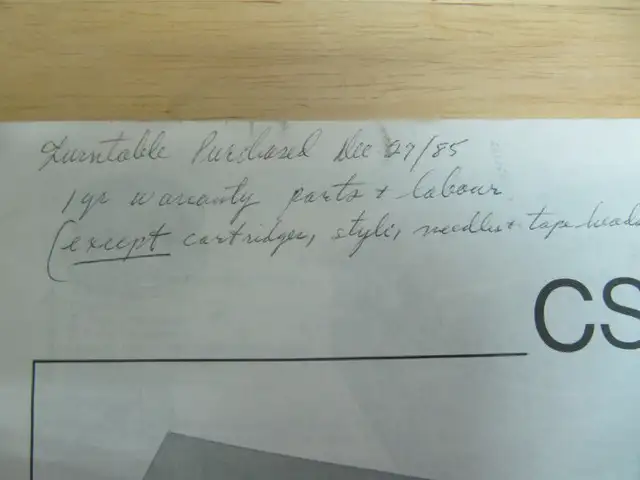 Turntable Purchased Dec 27/85
1 yr warranty parts + labour
(except cartridges, styli, needles + tape heads
CS